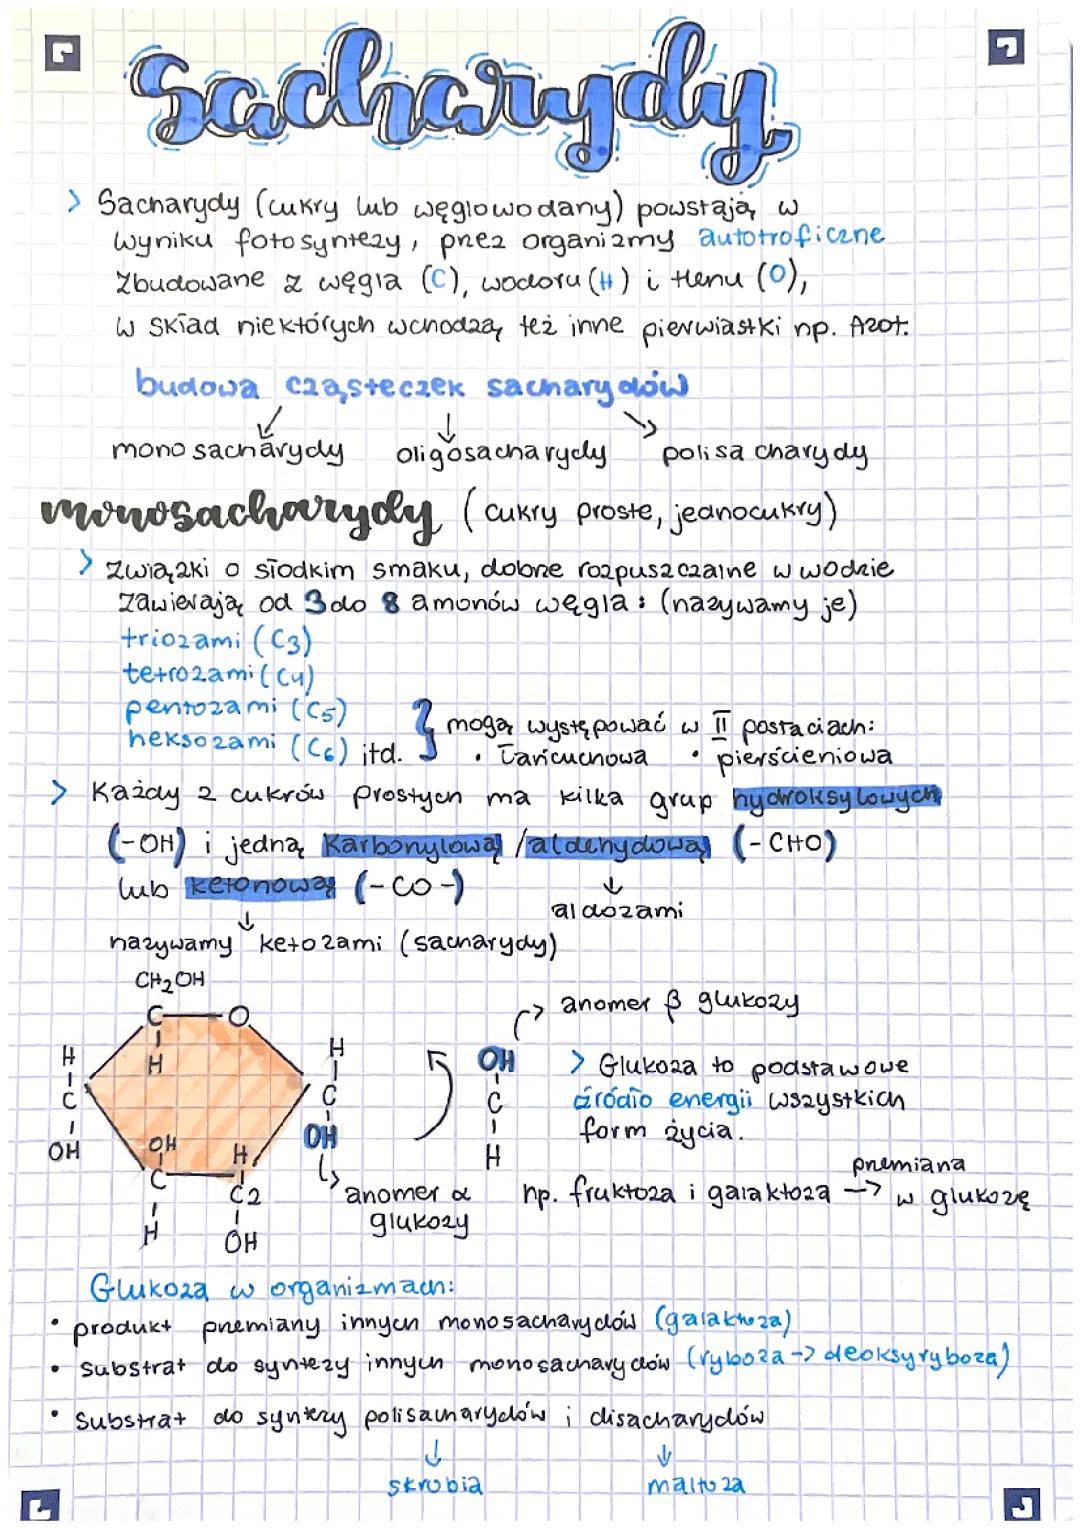 Sacharydy
> Sacharydy (cukry lub węglowodany) powstają, w
wyniku fotosyntezy, przez organizmy autotroficzne
zbudowane z węgla (C), wodoru (H) i tlenu (O),
w skład niektórych wchodzą też inne pierwiastki np. Azot.
budowa cząsteczek sacharydów
monosacharydy oligosacharydy polisacharydy
monosacharydy (cukry proste, jednocukry)
> Związki o słodkim smaku, dobrze rozpuszczalne w wodzie
zawierają od 3 do 8 amonów węgla: (nazywamy je)
triozami (C3)
tetrozami (C4)
pentozami (C5)
heksozami (C6) itd.
} mogą występować w II postaciach:
• Łańcuchowa • pierścieniowa
> Każdy z cukrów prostych ma kilka grup hydroksylowych
(-OH) i jedną karbonylową / aldehydową (-CHO)
lub ketonową (-CO-)
↓
aldozami
↓
nazywamy ketozami (sacharydy)
CH2OH
C O
H
H
C
OH
OH
C
H
H
C2
OH
H
C
OH
↳ anomer α
glukozy
OH
C
H
→ anomer β glukozy
> Glukoza to podstawowe
źródło energii wszystkich
form życia.
np. fruktoza i galaktoza → przemiana w glukozę
Glukoza w organizmach:
• produkt przemiany innych monosacharydów (galaktoza)
• substrat do syntezy innych monosacharydów (ryboza -> deoksyryboza)
• Substrat do syntezy polisacharydów i disacharydów
↓ ↓
skrobia maltoza